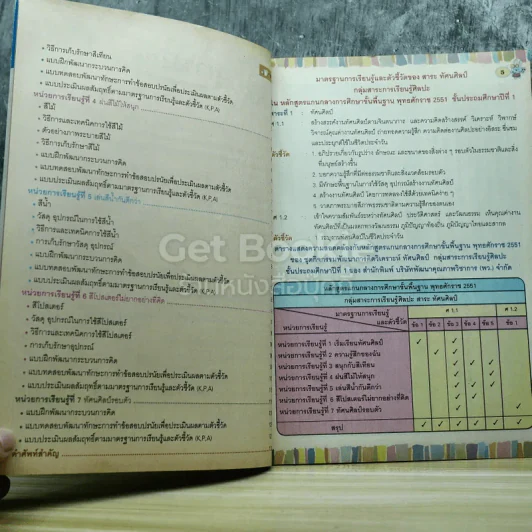 • วิธีการเก็บรักษาสีเทียน
• แบบฝึกพัฒนากระบวนการคิด
• แบบทดสอบพัฒนาทักษะการทำข้อสอบปรนัยเพื่อประเมินผลตามตัวชี้วัด
• แบบประเมินผลสัมฤทธิ์ตามมาตรฐานการเรียนรู้และตัวชี้วัด (K,P,A)
หน่วยการเรียนรู้ที่ 4 ฝนสีไม้ให้สนุก
• สีไม้
• วิธีการและเทคนิคการใช้สีไม้
• ตัวอย่างภาพระบายสีไม้
• วิธีการเก็บรักษาสีไม้
• แบบฝึกพัฒนากระบวนการคิด
• แบบทดสอบพัฒนาทักษะการทำข้อสอบปรนัยเพื่อประเมินผลตามตัวชี้วัด
• แบบประเมินผลสัมฤทธิ์ตามมาตรฐานการเรียนรู้และตัวชี้วัด (K,P,A)
หน่วยการเรียนรู้ที่ 5 เล่นสีน้ำกันดีกว่า
• สีน้ำ
• วัสดุ อุปกรณ์ในการใช้สีน้ำ
• วิธีการและเทคนิคการใช้สีน้ำ
• การเก็บรักษาวัสดุ อุปกรณ์
• แบบฝึกพัฒนากระบวนการคิด
• แบบทดสอบพัฒนาทักษะการทำข้อสอบปรนัยเพื่อประเมินผลตามตัวชี้วัด
• แบบประเมินผลสัมฤทธิ์ตามมาตรฐานการเรียนรู้และตัวชี้วัด (K,P,A)
หน่วยการเรียนรู้ที่ 6 สีโปสเตอร์ไม่ยากอย่างที่คิด
• สีโปสเตอร์
• วัสดุ อุปกรณ์ในการใช้สีโปสเตอร์
• วิธีการและเทคนิคการใช้สีโปสเตอร์
• การเก็บรักษาอุปกรณ์
• แบบฝึกพัฒนากระบวนการคิด
• แบบทดสอบพัฒนาทักษะการทำข้อสอบปรนัยเพื่อประเมินผลตามตัวชี้วัด
• แบบประเมินผลสัมฤทธิ์ตามมาตรฐานการเรียนรู้และตัวชี้วัด (K,P,A)
หน่วยการเรียนรู้ที่ 7 ทัศนศิลป์รอบตัว
• แบบฝึกพัฒนากระบวนการคิด
• แบบทดสอบพัฒนาทักษะการทำข้อสอบปรนัยเพื่อประเมินผลตามตัวชี้วัด
• แบบประเมินผลสัมฤทธิ์ตามมาตรฐานการเรียนรู้และตัวชี้วัด (K,P,A)
คำศัพท์สำคัญ
มาตรฐานการเรียนรู้และตัวชี้วัดของ สาระ ทัศนศิลป์
กลุ่มสาระการเรียนรู้ศิลปะ
หลักสูตรแกนกลางการศึกษาขั้นพื้นฐาน พุทธศักราช 2551 ชั้นประถมศึกษาปีที่ 1
สาระที่ 1 : ทัศนศิลป์
ศ 1.1 : สร้างสรรค์งานทัศนศิลป์ตามจินตนาการ และความคิดสร้างสรรค์ วิเคราะห์ วิพากษ์
วิจารณ์คุณค่างานทัศนศิลป์ ถ่ายทอดความรู้สึก ความคิดต่องานศิลปะอย่างอิสระ ชื่นชม
และประยุกต์ใช้ในชีวิตประจำวัน
ตัวชี้วัด : 1. อภิปรายเกี่ยวกับรูปร่าง ลักษณะ และขนาดของสิ่งต่าง ๆ รอบตัวในธรรมชาติและสิ่ง
ที่มนุษย์สร้างขึ้น
2. บอกความรู้สึกที่มีต่อธรรมชาติและสิ่งแวดล้อมรอบตัว
3. มีทักษะพื้นฐานในการใช้วัสดุ อุปกรณ์สร้างงานทัศนศิลป์
4. สร้างงานทัศนศิลป์ โดยการทดลองใช้สีด้วยเทคนิคง่าย ๆ
5. วาดภาพระบายสีภาพธรรมชาติตามความรู้สึกของตนเอง
ศ 1.2 : เข้าใจความสัมพันธ์ระหว่างทัศนศิลป์ ประวัติศาสตร์ และวัฒนธรรม เห็นคุณค่างาน
ทัศนศิลป์ที่เป็นมรดกทางวัฒนธรรม ภูมิปัญญาท้องถิ่น ภูมิปัญญาไทยและสากล
ตัวชี้วัด : 1. ระบุงานทัศนศิลป์ในชีวิตประจำวัน
หลักสูตรแกนกลางการศึกษาขั้นพื้นฐาน พุทธศักราช 2551
ชั้นประถมศึกษาปีที่ 1 ของ สำนักพิมพ์ บริษัทพัฒนาคุณภาพวิชาการ (พว.) จำกัด
หลักสูตรแกนกลางการศึกษาขั้นพื้นฐาน พุทธศักราช 2551
กลุ่มสาระการเรียนรู้ศิลปะ สาระ ทัศนศิลป์
มาตรฐานการเรียนรู้ และตัวชี้วัด ศ 1.1 ศ 1.2
หน่วยการเรียนรู้ ข้อ 1 ข้อ 2 ข้อ 3 ข้อ 4 ข้อ 5 ข้อ 1
หน่วยการเรียนรู้ที่ 1 เริ่มเรียนทัศนศิลป์
หน่วยการเรียนรู้ที่ 2 ความรู้สึกของฉัน
หน่วยการเรียนรู้ที่ 3 สนุกกับสีเทียน
หน่วยการเรียนรู้ที่ 4 ฝนสีไม้ให้สนุก
หน่วยการเรียนรู้ที่ 5 เล่นสีน้ำกันดีกว่า
หน่วยการเรียนรู้ที่ 6 สีโปสเตอร์ไม่ยากอย่างที่คิด
หน่วยการเรียนรู้ที่ 7 ทัศนศิลป์รอบตัว
สรุป
Get Bo